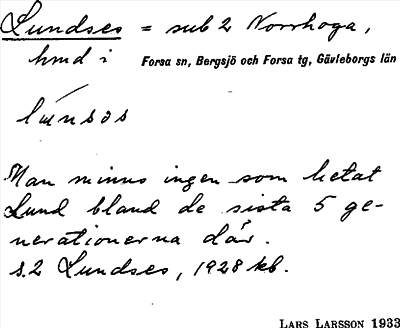 Lundses = sub 2 Norrhoga,
hmd i Forsa sn, Bergsjö och Forsa tg, Gävleborgs län
lúnsəs
Man minns ingen som hetat
Lund bland de sista 5 ge-
nerationerna där.
s.2 Lundses, 1928 kb.
LARS LARSSON 1933